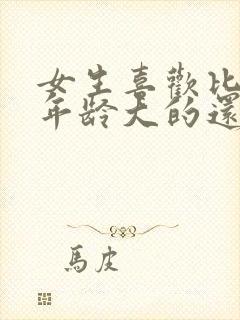 女生喜歡比
年龄大的還
馬皮